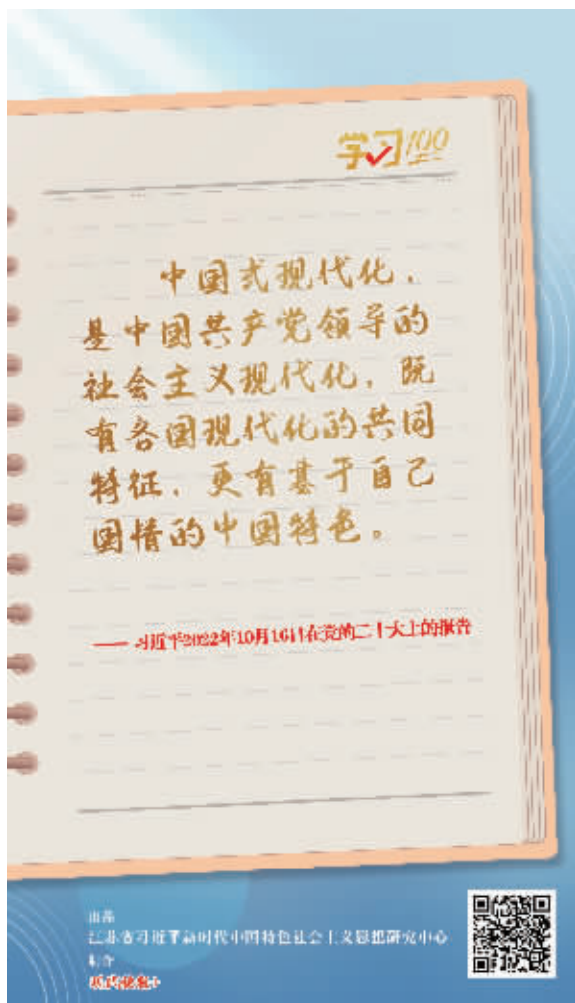 学习100
中国式现代化，
是中国共产党领导的
社会主义现代化，既
有各国现代化的共同
特征，更有基于自己
国情的中国特色。
—— 习近平2022年10月16日在党的二十大上的报告
出品
江苏省习近平新时代中国特色社会主义思想研究中心
制作